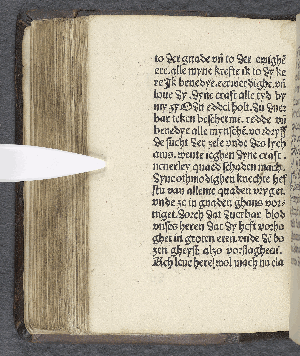 to der gnade vn to der ewighe
ere. alle myne krefte ik to dy ke
re Jk benedye. eerwerdighe. vn
loue dy. dyne craft alle tyd by
my zy O du eddel holt. du
bar teken bescherme. redde vn
benedye alle mynsche. vor
de sucht der zele vnde des lych
ams. wente ieghen dyne craft.
nenerley quaed schaden mach.
Dyne othmodighen knechte hef
stu van alleme quaden vryget.
vnde ze in gnaden ghans vor
nyget. dorch dat duerbar blod
vnses heren dat dy heft vorho
ghet in groten eren. vnde de bo
zen gheyst alzo vorslaghen.
Och leue here wol mach nu